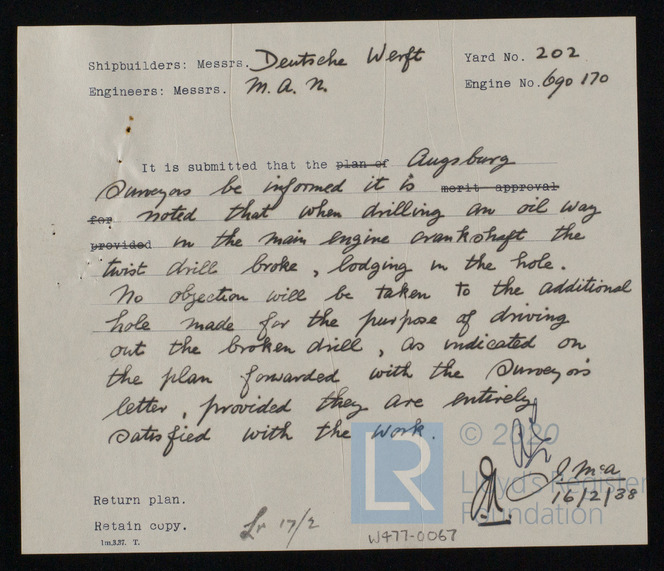 Shipbuilders: Messrs. Deutsche Werft Yard No. 202
Engineers: Messrs. M.A.N. Engine No. 690 170
It is submitted that the plan of Augsburg
Surveyors be informed it is merit approval
for noted that when drilling an oil way
provided in the main engine crankshaft the
twist drill broke, lodging in the hole.
No objection will be taken to the additional
hole made for the purpose of driving
out the broken drill, as indicated on
the plan forwarded with the Surveyors
letter, provided they are entirely
satisfied with the work.
© 2020
LR
Lloyd's Register
Foundation
J. McA
16/2/38
Return plan.
Retain copy.
1m.3.37. T.
17/2
W477-0067